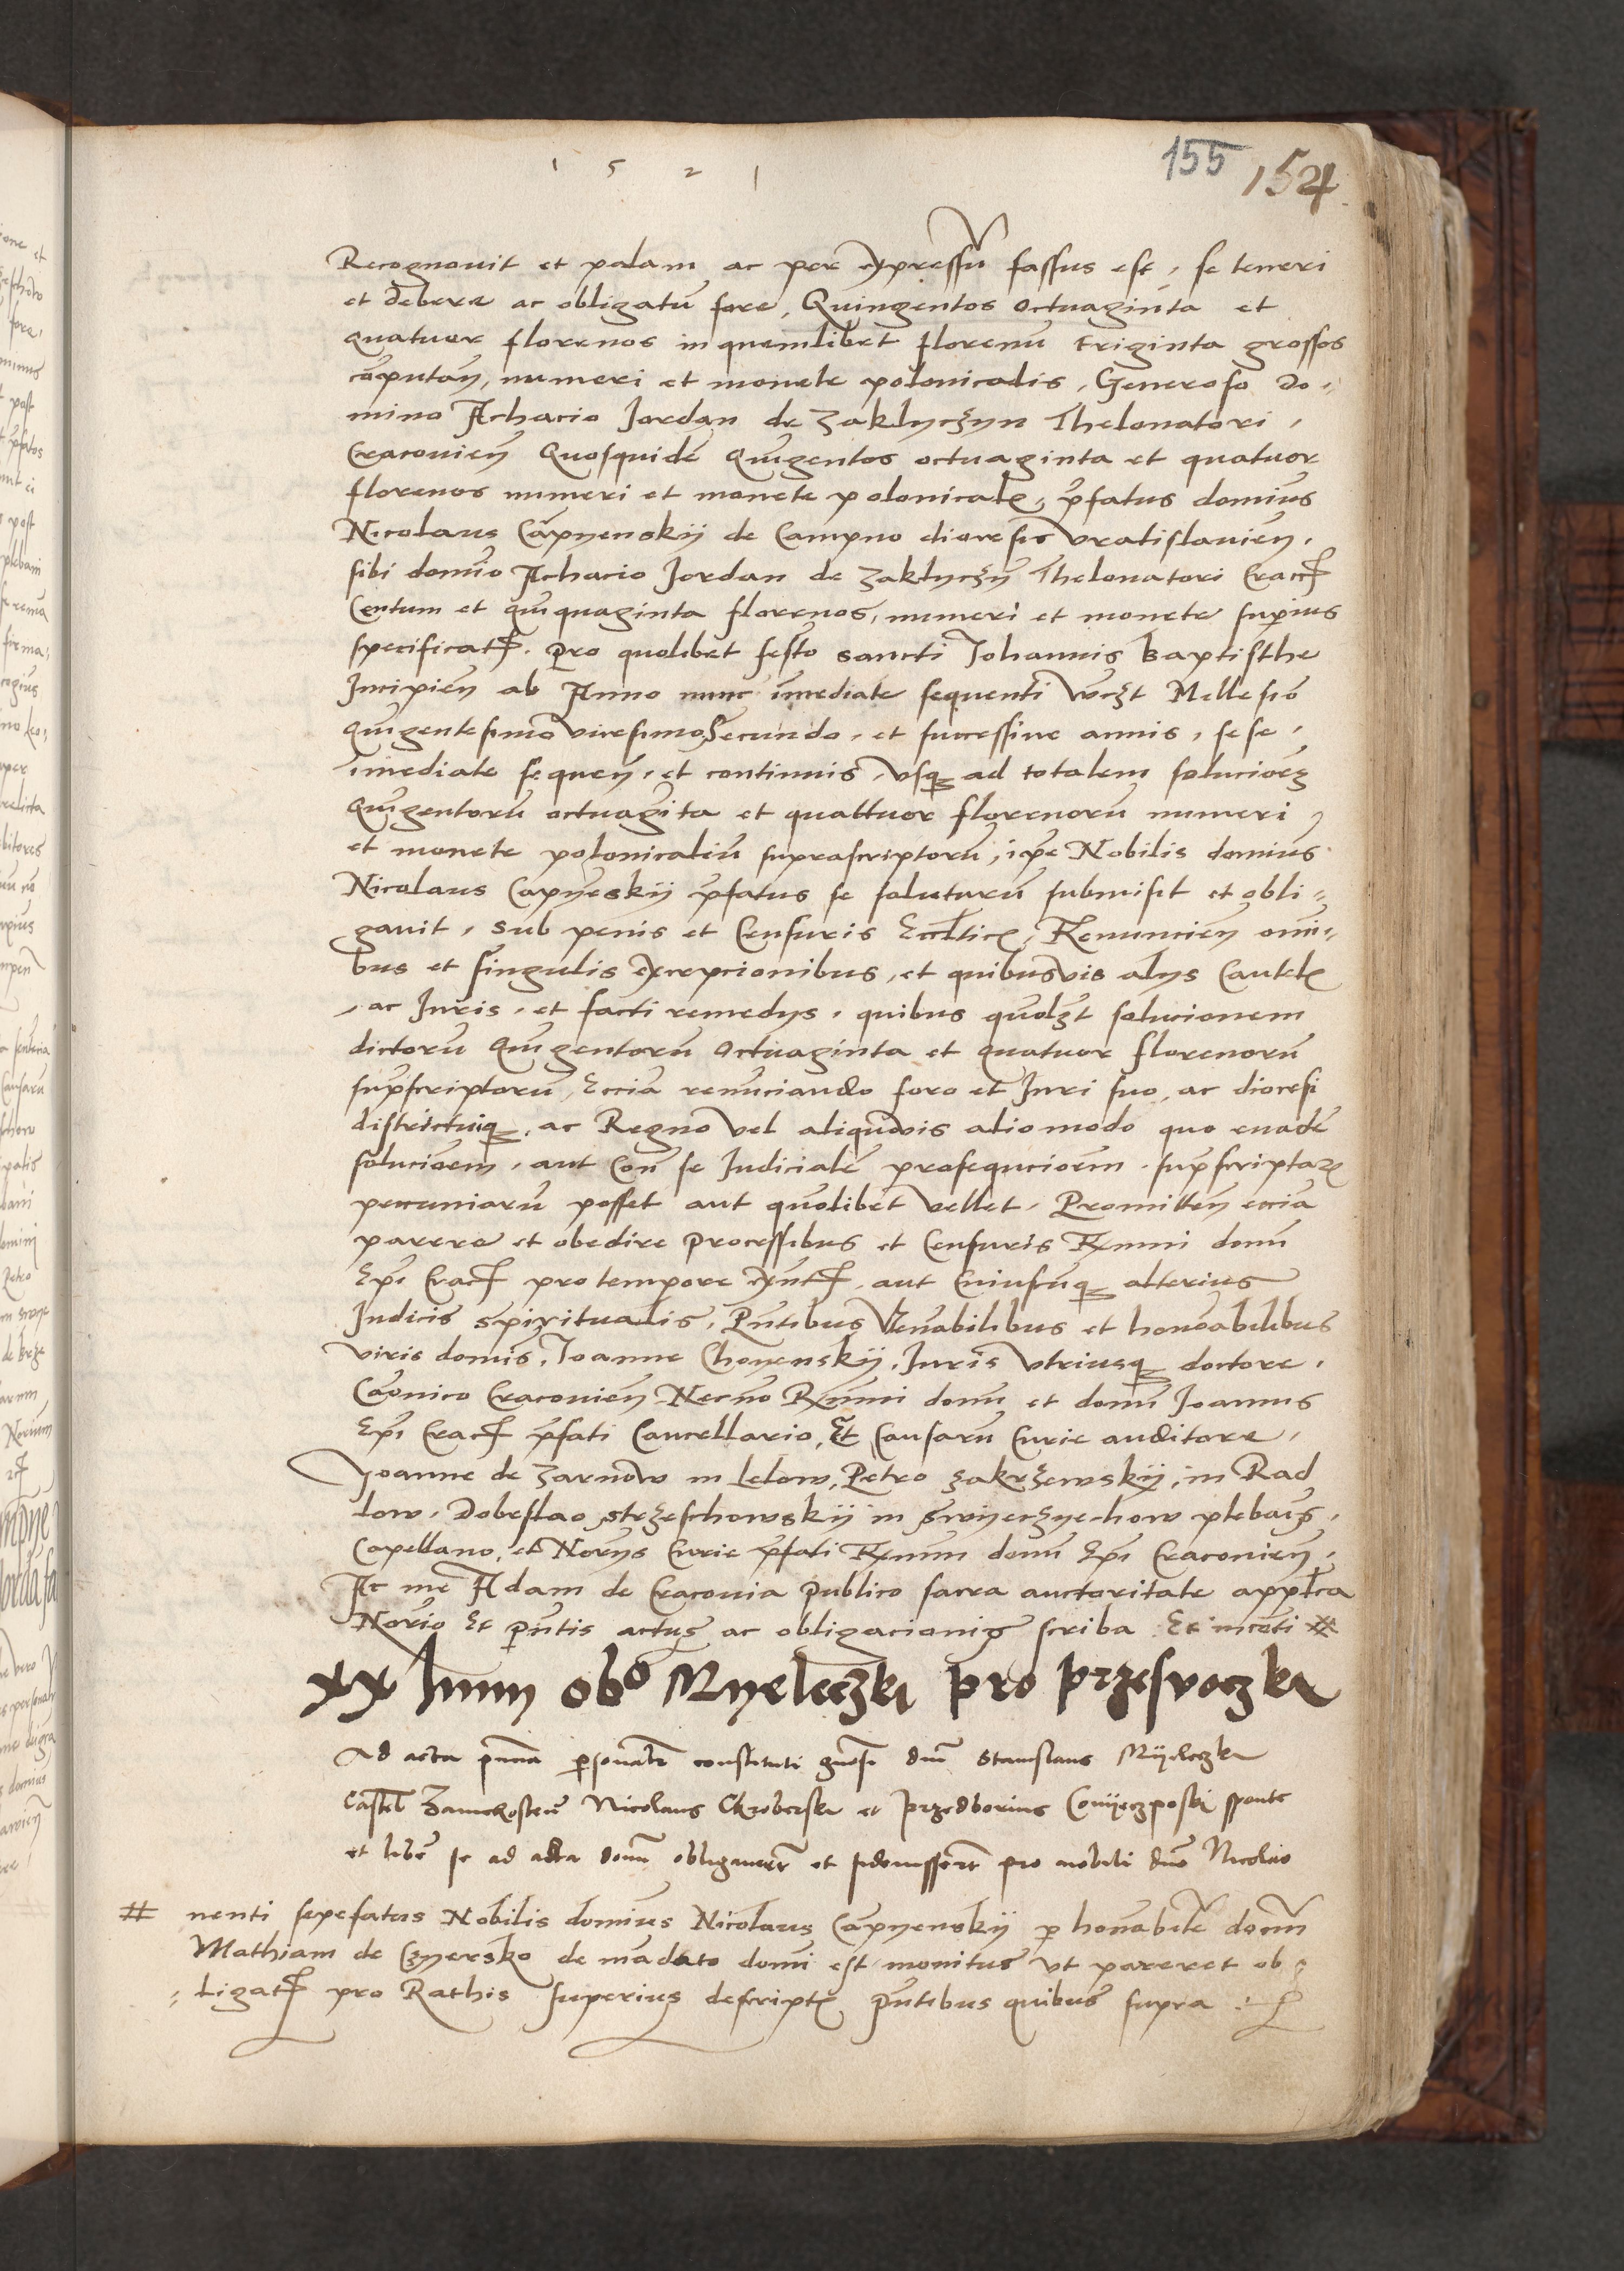 1521
155 154
Recognouit et palam ac per expressū fassus est, se teneri
et debere ac obligatū fore, Quingentos octuaginta et
quatuor florenos in quemlibet florenū triginta grossos
cōputan̄, numeri et monete polonicalis, Generoso do-
mino Achacio Jordan de Zaklyczyn Thelonatori,
Cracovien̄ Quosquidē quīgentos octuaginta et quatuor
florenos numeri et monete polonical, p̄fatus domīus
Nicolaus Cāpyenskij de Campno diocesis Vratislavien̄,
sibi domīo Achacio Jordan de Zaklyczyn̄ Thelonatori Crac
Centum et quīquaginta florenos, numeri et monete sup̄ius
specificat. pro quolibet festo sancti Johannis Baptisthe
Incipien̄ ab Anno nunc īmediate sequenti vczt Millesiō
quīgentesimo vicesimo Secundo, et successiue annis, sese,
imediate sequen̄, et continuis, vsq ad totalem solucioēz
Quīgentorū octuagīta et quattuor florenorū numeri
et monete polonicaliū suprascriptorū, ip̄e Nobilis domīus
Nicolaus Capyēskij p̄fatus se soluturū submisit et obli-
gauit, sub penis et Censuris Eccl̄tic, Renuncien̄ omī-
bus et singulis excepcionibus, et quibusuis alijs Cautel
, ac Juris, et facti remedijs, quibus quolzt solucionem
dictorū Quīgentorū Octuaginta et quatuor florenorū
sup̄scriptorū, Eciā renūciando foro et Juri suo, ac diocesi
districtuiq, ac Regno vel aliquouis alio modo quo euadē
solucioem, aut Con̄ se Judicialē prosequcioem sup̄scriptar
peccuniarū posset aut quolibet vellet, Promitten̄ eciā
parere et obedire processibus et Censuris R̄mi domī
Ep̄i Crac pro tempore exn̄t, aut Cuiuscūq alterius
Judicis spiritualis, Pn̄tibus Venabilibus et honoabilibus
viris domīs, Joanne Chonenskij, Juris vtriusq doctore,
Caōnico Cracovien̄ Necnō R̄mi domī et domī Joannis
Ep̄i Crac p̄fati Cancellario, Et Causarū Curie auditore,
Joanne de Zarnow in Lelow, Petro Zakrzewskij, in Rad
low, Dobeslao strzeschowskij in Swyerzyechow plebaīs,
Capellano, et Notijs Curie p̄fati R̄mi domī Ep̄i Cracovien̄,
Ac me Adam de Cracouia publico sacra auctoritate appl̄ca
Notio Et p̄ntis actus ac obligacionis scriba Et incōti #
xx hnny obº Myeleczki pro przesvoczki
Ad acta personal constituti gnosi dn̄i Stanislaus Myeleczki
Castel Nicolaus et Przedborius Conyeczpolski sponte
et libē se ad acta domī obligauert et pro nobili dn̄o Nicolao
# nenti sepefatus Nobilis domīus Nicolaus Capyenskij p honabile domī
Mathiam de Czyersko de mādato domī est monitus vt pareret ob
ligat pro Rathis superius descript p̄ntibus quibus supra